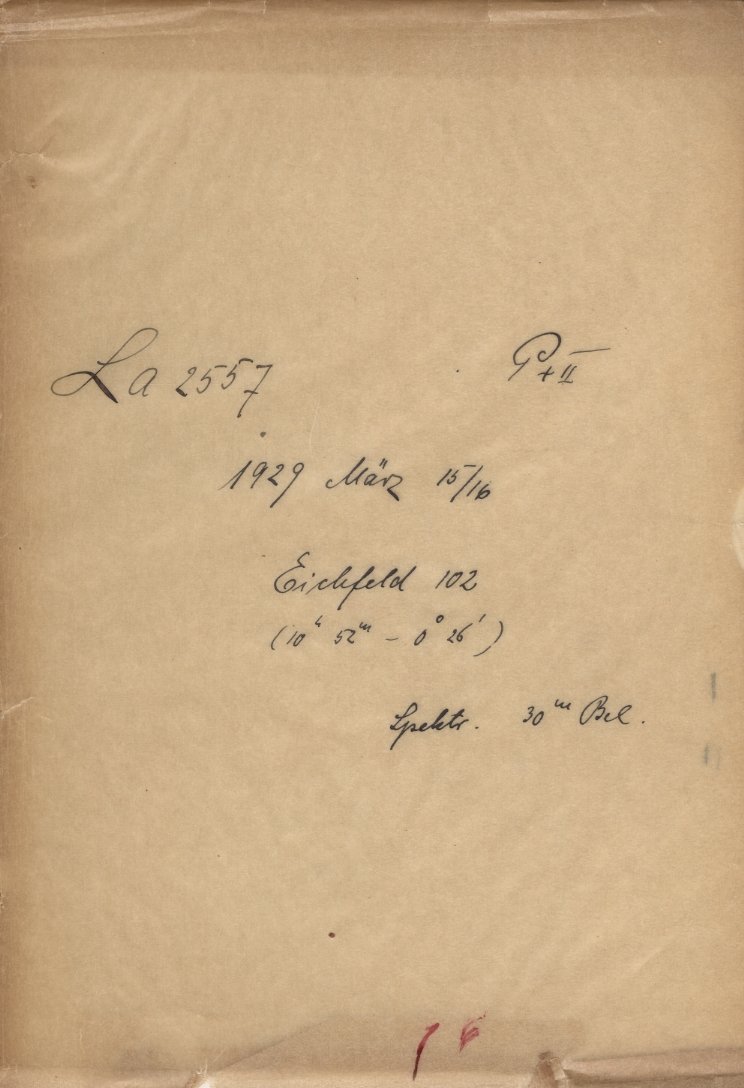 La 2557 P + II
1929 März 15/16
Eichfeld 102
(10ʰ 52ᵐ – 0° 26')
Spektr. 30ᵐ Bel.